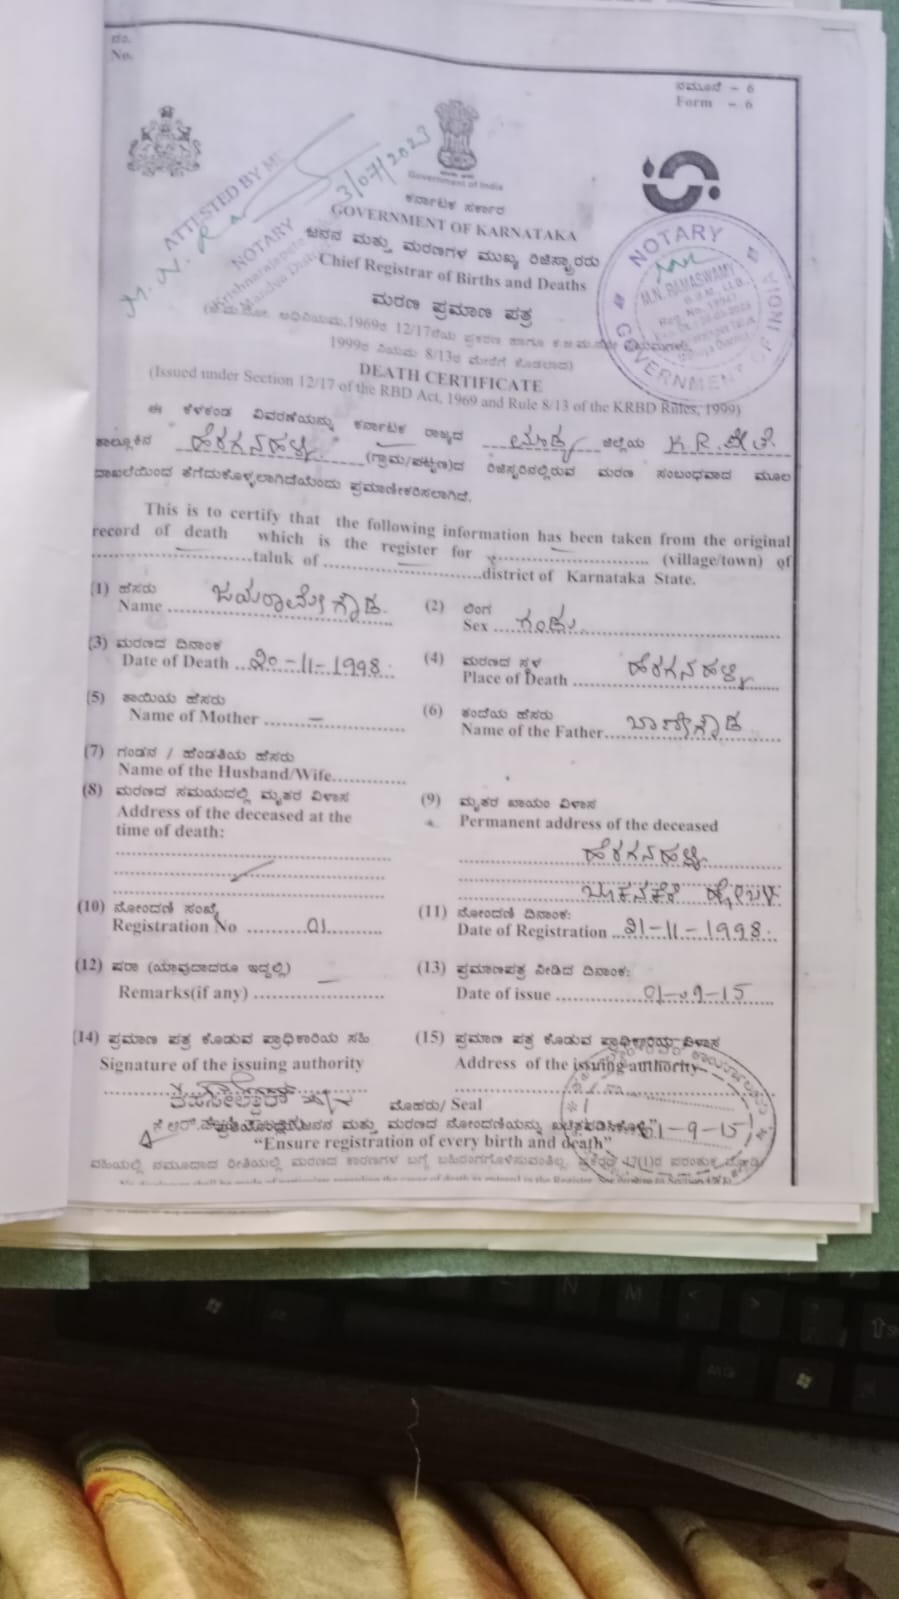 ನಂ.
No.
ನಮೂನೆ - 6
Form - 6
ATTESTED BY ME
3/07/2023
NOTARY
Krishnarajapete
Mandya District
Government of India
ಕರ್ನಾಟಕ ಸರ್ಕಾರ
GOVERNMENT OF KARNATAKA
ಜನನ ಮತ್ತು ಮರಣಗಳ ಮುಖ್ಯ ರಿಜಿಸ್ಟ್ರಾರರು
Chief Registrar of Births and Deaths
NOTARY
M.N. RAMASWAMY
GOVERNMENT OF INDIA
ಮರಣ ಪ್ರಮಾಣ ಪತ್ರ
ಅಧಿನಿಯಮ,1969ರ 12/17ನೆಯ ಪ್ರಕರಣ ಹಾಗೂ
1999ರ ನಿಯಮ 8/13ರ ಮೇರೆಗೆ ಕೊಡಲಾದ)
DEATH CERTIFICATE
(Issued under Section 12/17 of the RBD Act, 1969 and Rule 8/13 of the KRBD Rules, 1999)
ಈ ಕೆಳಕಂಡ ವಿವರಣೆಯನ್ನು ಕರ್ನಾಟಕ ರಾಜ್ಯದ ಮಂಡ್ಯ ಜಿಲ್ಲೆಯ K.R.ಪೇಟೆ
ತಾಲ್ಲೂಕಿನ ಹೆರಗನಹಳ್ಳಿ (ಗ್ರಾಮ/ಪಟ್ಟಣ)ದ ರಿಜಿಸ್ಟರಿನಲ್ಲಿರುವ ಮರಣ ಸಂಬಂಧವಾದ ಮೂಲ
ದಾಖಲೆಯಿಂದ ತೆಗೆದುಕೊಳ್ಳಲಾಗಿದೆಯೆಂದು ಪ್ರಮಾಣೀಕರಿಸಲಾಗಿದೆ.
This is to certify that the following information has been taken from the original
record of death which is the register for .................... (village/town) of
....................taluk of ....................district of Karnataka State.
(1) ಹೆಸರು
Name ಜಯರಾಮೇಗೌಡ.
(2) ಲಿಂಗ
Sex ಗಂಡು
(3) ಮರಣದ ದಿನಾಂಕ
Date of Death ೨೦-11-1998.
(4) ಮರಣದ ಸ್ಥಳ
Place of Death ಹೆರಗನಹಳ್ಳಿ
(5) ತಾಯಿಯ ಹೆಸರು
Name of Mother –
(6) ತಂದೆಯ ಹೆಸರು
Name of the Father
(7) ಗಂಡನ / ಹೆಂಡತಿಯ ಹೆಸರು
Name of the Husband/Wife
(8) ಮರಣದ ಸಮಯದಲ್ಲಿ ಮೃತರ ವಿಳಾಸ
Address of the deceased at the
time of death:
(9) ಮೃತರ ಖಾಯಂ ವಿಳಾಸ
Permanent address of the deceased
ಹೆರಗನಹಳ್ಳಿ
ಬೂಕನಕೆರೆ ಹೋಬಳಿ
(10) ನೋಂದಣಿ ಸಂಖ್ಯೆ
Registration No 01
(11) ನೋಂದಣಿ ದಿನಾಂಕ:
Date of Registration ೨1-11-1998.
(12) ಷರಾ (ಯಾವುದಾದರೂ ಇದ್ದಲ್ಲಿ)
Remarks(if any) –
(13) ಪ್ರಮಾಣಪತ್ರ ನೀಡಿದ ದಿನಾಂಕ:
Date of issue 01-09-15
(14) ಪ್ರಮಾಣ ಪತ್ರ ಕೊಡುವ ಪ್ರಾಧಿಕಾರಿಯ ಸಹಿ
Signature of the issuing authority
(15) ಪ್ರಮಾಣ ಪತ್ರ ಕೊಡುವ ಪ್ರಾಧಿಕಾರಿಯ ವಿಳಾಸ
Address of the issuing authority
ಮೊಹರು/ Seal
ಜನನ ಮತ್ತು ಮರಣದ ನೋಂದಣಿಯನ್ನು ಖಚಿತಪಡಿಸಿಕೊಳ್ಳಿ"
1-9-15
"Ensure registration of every birth and death"
ವಹಿಯಲ್ಲಿ ನಮೂದಾದ ರೀತಿಯಲ್ಲಿ ಮರಣದ ಕಾರಣಗಳ ಬಗ್ಗೆ ಬಹಿರಂಗಗೊಳಿಸುವಂತಿಲ್ಲ. ಪ್ರಕರಣ 17(1)ರ ಪರಂತುಕ